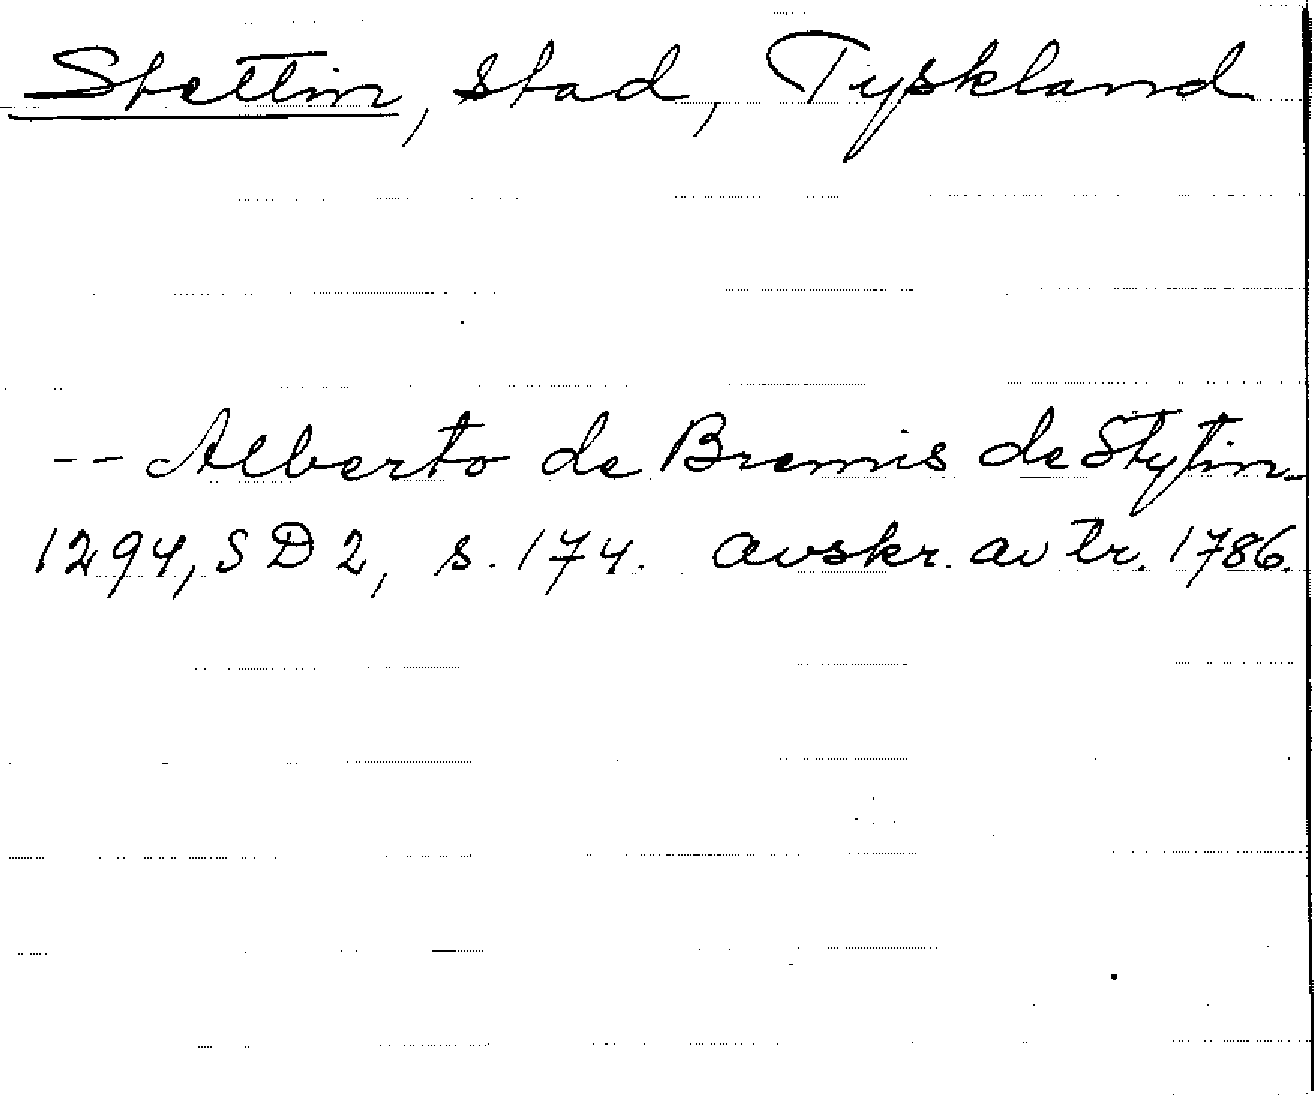 Stettin, stad, Tyskland
-- Alberto de Bremis de Stytin
1294, SD 2, s. 174. avskr. av tr. 1786.